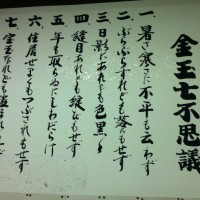 金玉七不思議
一、暑さ寒さに不平も云わず
二、ぶらぶらすれども落ちもせず
三、日影であれども色黒し
四、縫目あれども綻びもせず
五、年も取らぬにしわだらけ
六、住居せまくもつぶされもせず
七、宝玉なれども盗まれ